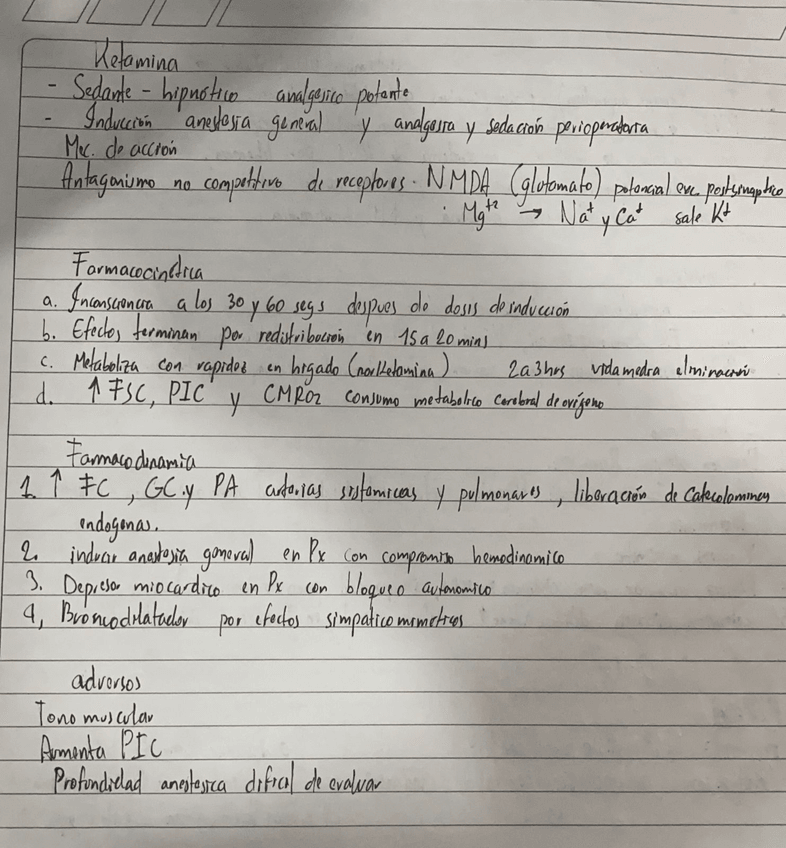 Ketamina
- Sedante - hipnótico analgésico potante
- Inducción anestesia general y analgesia y sedación perioperatoria
Mec. de acción
Antagonismo no competitivo de receptores. NMDA (glutamato) potencial exc. postsinaptico
. Mg+2 → Na+ y Ca+ sale K+
Farmacocinética
a. Inconsciencia a los 30 y 60 segs despues de dosis de inducción
b. Efectos terminan por redistribución en 15 a 20 mins
c. Metaboliza con rapidez en hígado (norketamina) 2 a 3 hrs vida media eliminación
d. ↑ FSC, PIC y CMRO2 consumo metabolico cerebral de oxígeno
Farmacodinamia
1 ↑ FC, GC y PA arterias sistemicas y pulmonares, liberación de catecolaminas
endogenas.
2. inducir anestesia general en Px con compromiso hemodinamico
3. Depresor miocardico en Px con bloqueo autonomico
4, Broncodilatador por efectos simpaticomimeticos
adversos
Tono muscular
Aumenta PIC
Profundidad anestesica dificil de evaluar